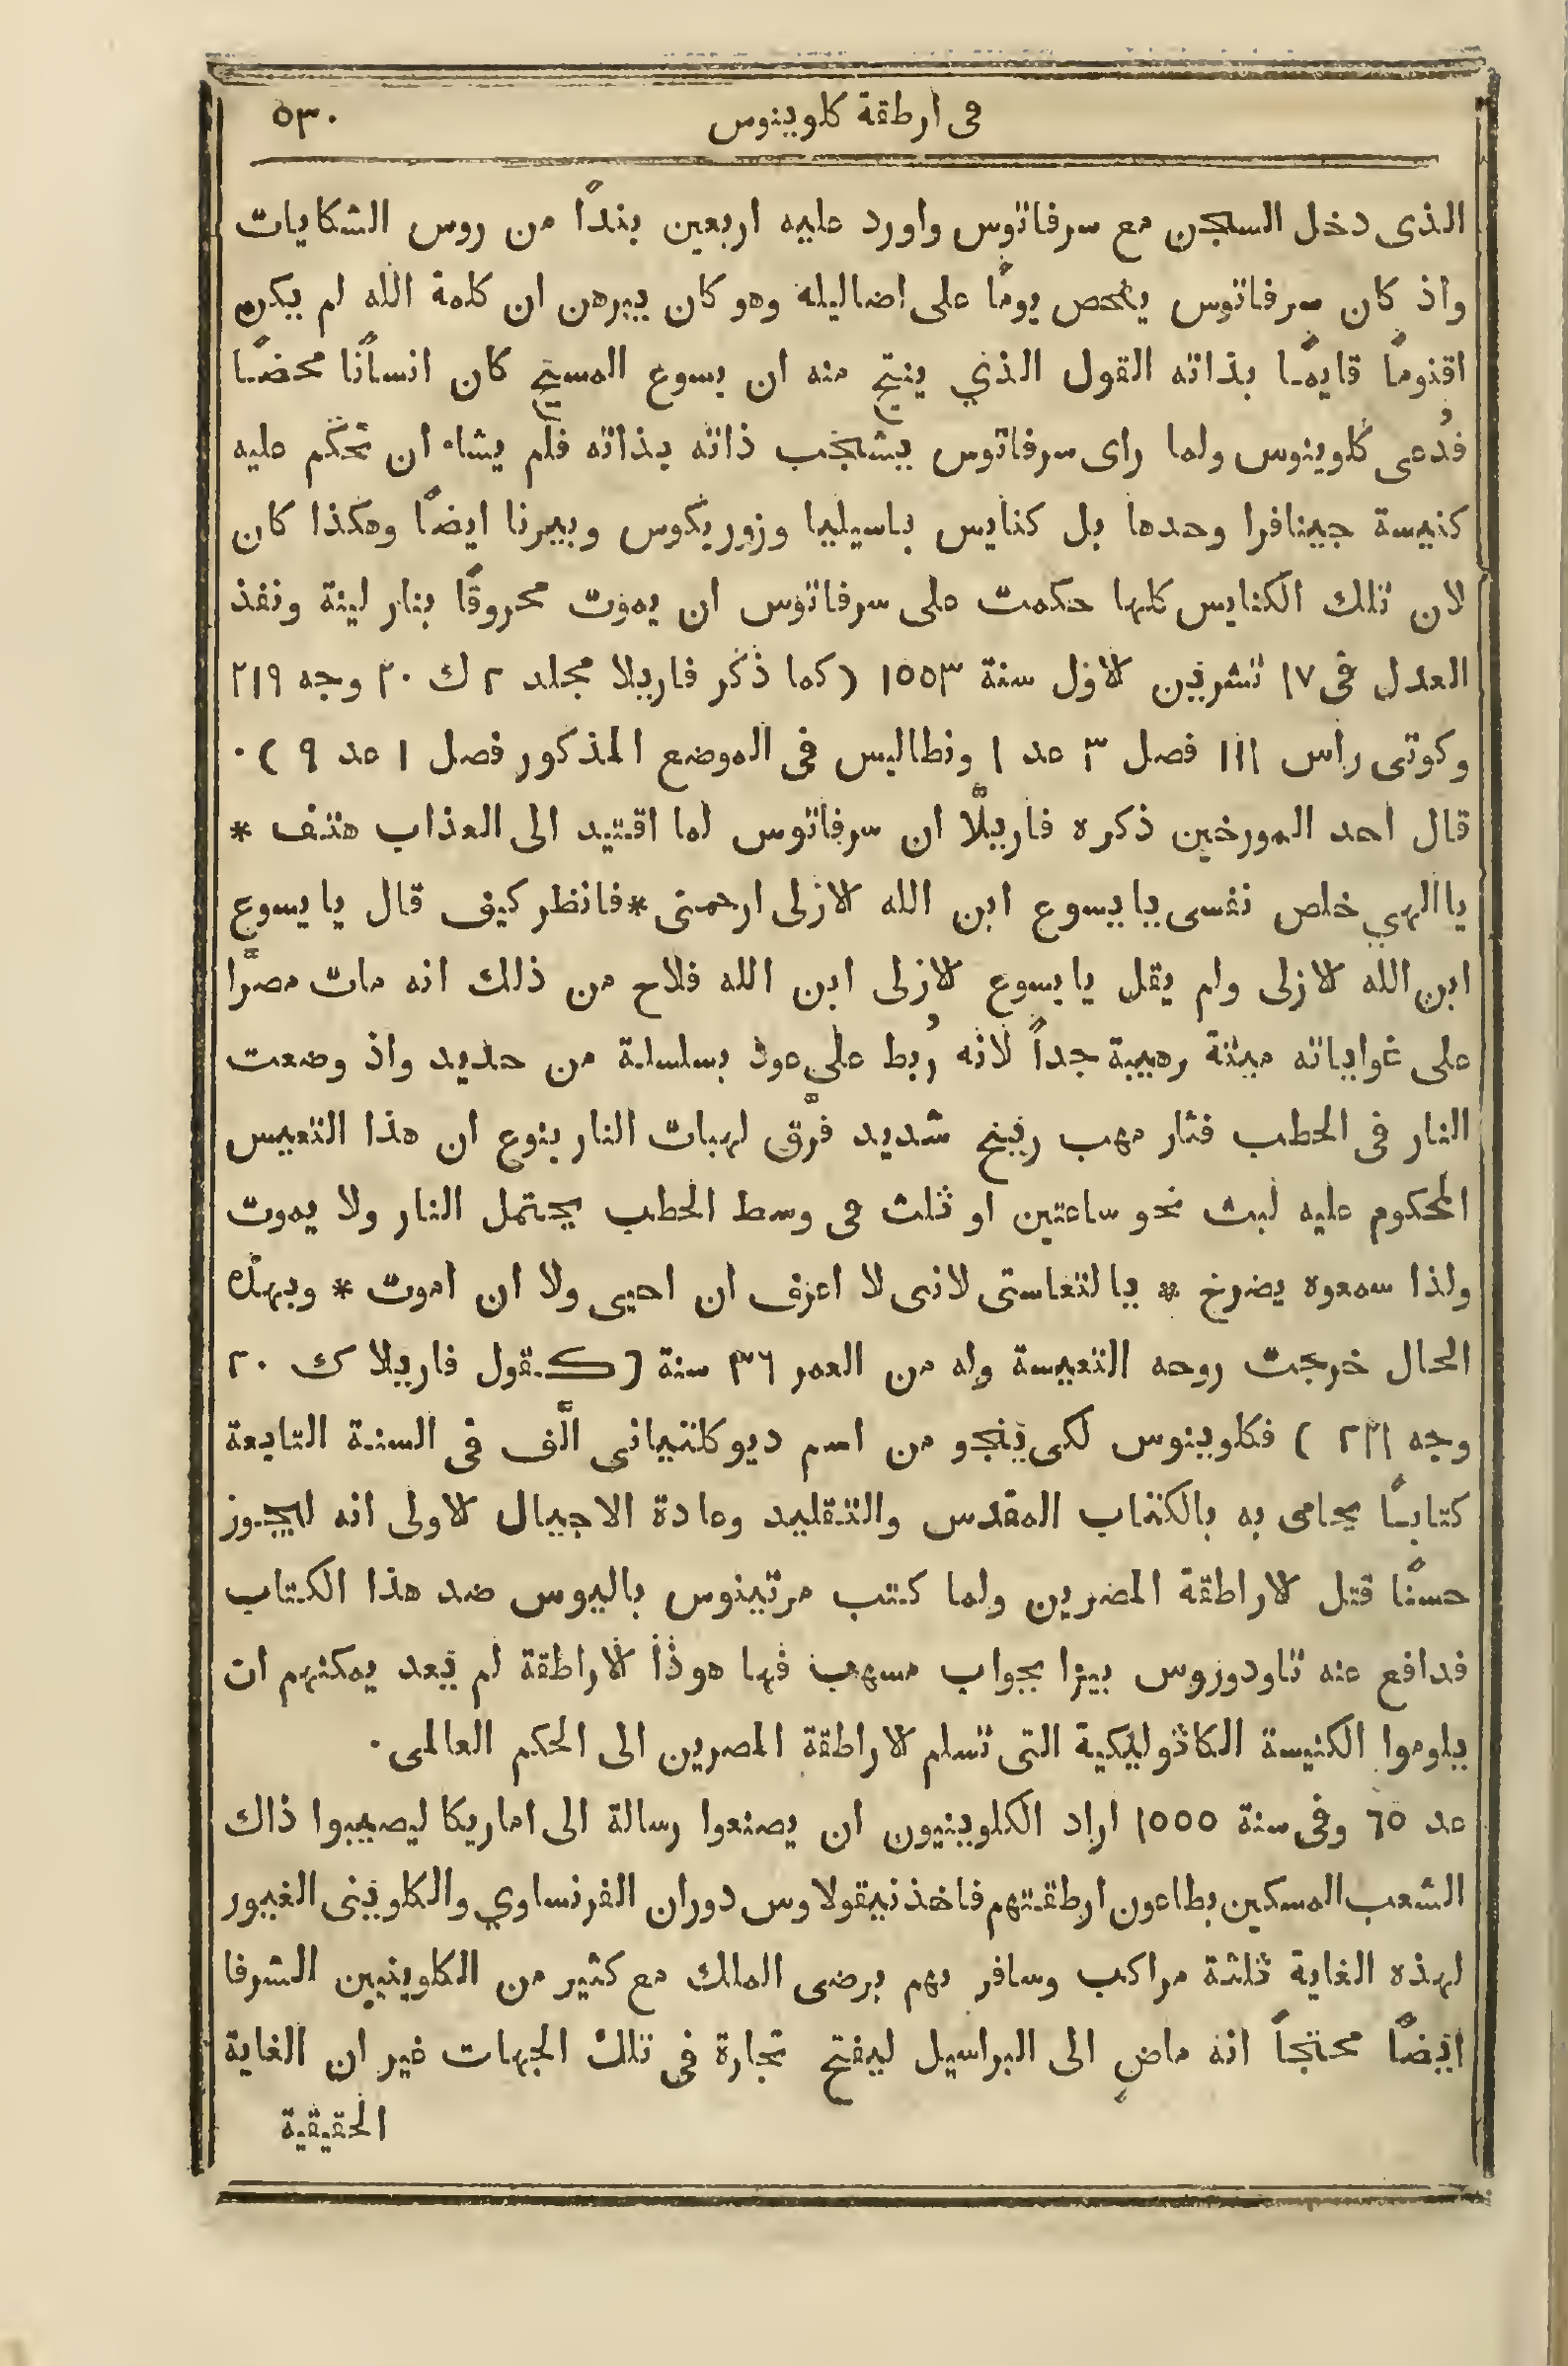 في ارطقة كلوينوس ٥٣٠
الذى دخل السجن مع سرفاتوس واورد عليه اربعين بنداً من روس الشكايات
واذ كان سرفاتوس يفحص يومًا على اضاليله وهو كان يبرهن ان كلمة الله لم يكن
اقنومًا قايمًا بذاته القول الذي ينتج منه ان يسوع المسيح كان انسانًا محضًا
فدُعى كلوينوس ولما راى سرفاتوس يشجب ذاته بذاته فلم يشاء ان تحكم عليه
كنيسة جينافرا وحدها بل كنايس باسيليا وزوريكوس وبيرنا ايضًا وهكذا كان
لان تلك الكنايس كلها حكمت على سرفاتوس ان يموت محروقًا بنار لينة ونفذ
العدل فى ١٧ تشرين الاول سنة ١٥٥٣ (كما ذكر فاريلا مجلد ٢ ك ٢٠ وجه ٢١٩
وكوتى راس ١١١ فصل ٣ عد ١ ونطاليس فى الموضع المذكور فصل ١ عد ٩ )٠
قال احد المورخين ذكره فاريلّا ان سرفاتوس لما اقتيد الى العذاب هتف *
يا الهي خلص نفسى يا يسوع ابن الله الازلى ارحمنى *فانظر كيف قال يا يسوع
ابن الله الازلى ولم يقل يا يسوع الازلى ابن الله فلاح من ذلك انه مات مصرًّا
على غواياته ميتة رهيبة جداً لانه رُبط على عود بسلسلة من حديد واذ وضعت
النار فى الحطب فثار مهب ريح شديد فرّق لهبات النار بنوع ان هذا التعيس
المحكوم عليه لبث نحو ساعتين او ثلث فى وسط الحطب يحتمل النار ولا يموت
ولذا سمعوه يصرخ * يا لتعاستى لانى لا اعرف ان احيى ولا ان اموت * وبهذه
الحال خرجت روحه التعيسة وله من العمر ٣٦ سنة (كقول فاريلا ك ٢٠
وجه ٢٢١ ) فكلوينوس لكى ينجو من اسم ديوكلتيانى الّف فى السنة التابعة
كتابًا يحامى به بالكتاب المقدس والتقليد وعادة الاجيال الاولى انه ليجوز
حسنًا قتل الاراطقة المضرين ولما كتب مرتينوس باليوس ضد هذا الكتاب
فدافع عنه تاودوروس بيزا بجواب مسهب فها هوذا الاراطقة لم يعد يمكنهم ان
يلوموا الكنيسة الكاثوليكية التى تسلم الاراطقة المصرين الى الحكم العالمى٠
عد ٦٥ وفى سنة ١٥٥٥ اراد الكلوينيون ان يصنعوا رسالة الى اماريكا ليصيبوا ذاك
الشعب المسكين بطاعون ارطقتهم فاخذ نيقولاوس دوران الفرنساوي والكلوينى الغيور
لهذه الغاية ثلثة مراكب وسافر بهم برضى الملك مع كثير من الكلوينيين الشرفا
ايضًا محتجاً انه ماضٍ الى البراسيل ليفتح تجارة فى تلك الجهات غير ان الغاية
الحقيقية